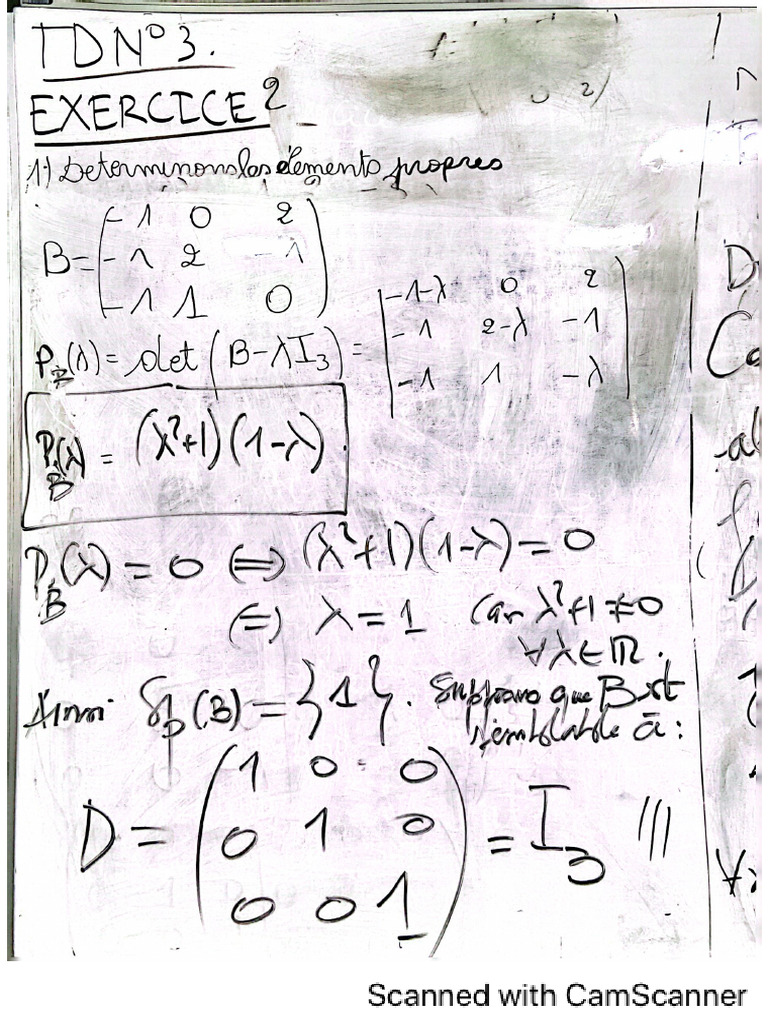 TD N° 3.
EXERCICE 2
1) Determinons les elements propres
B = (-1 0 2
-1 2 -1
-1 1 0)
P_B(λ) = det (B - λI_3) = | -1-λ 0 2
-1 2-λ -1
-1 1 -λ |
P_B(λ) = (λ²+1)(1-λ).
P_B(λ) = 0 ⟺ (λ²+1)(1-λ) = 0
(=) λ = 1 Car λ²+1 ≠ 0
∀λ ∈ ℝ.
Ainsi Sp(B) = {1}. Supposons que B est
semblable à :
D = (1 0 0
0 1 0
0 0 1) = I_3 ///
Scanned with CamScanner